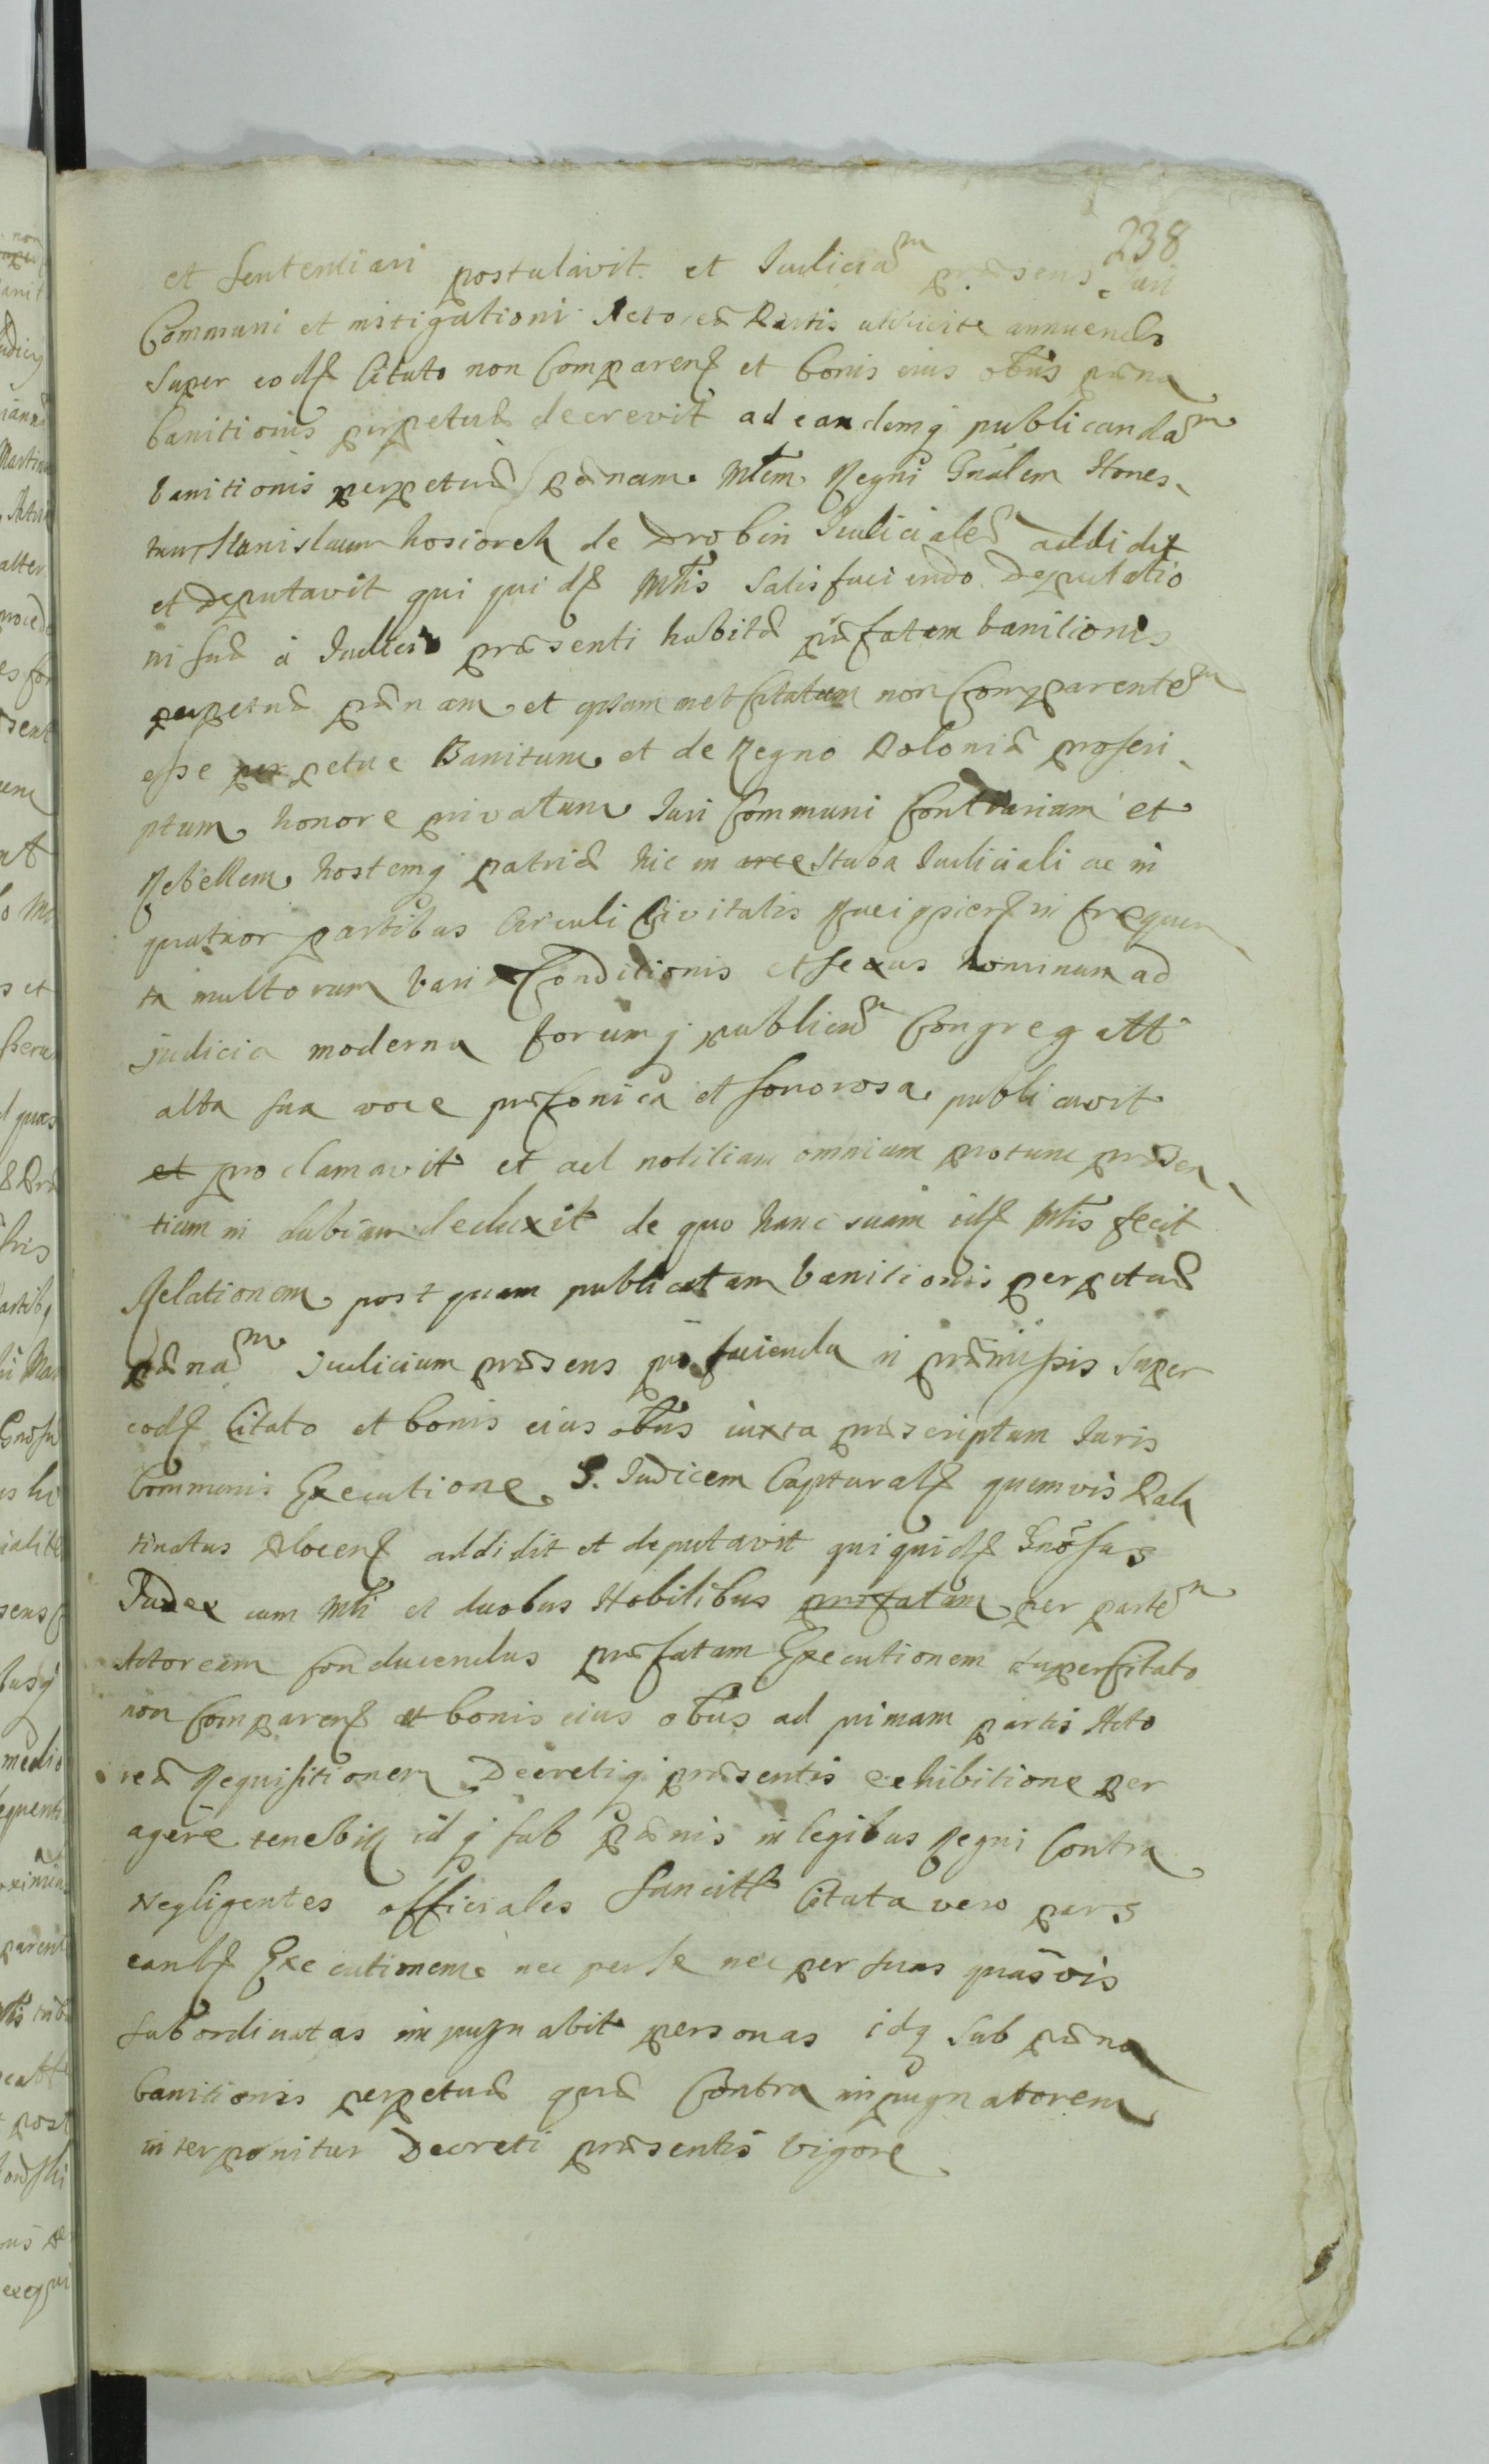 238
et Sententiari postulavit et Iudiciũm præsens Iuri
Communi et instigationi Actoreæ Partis annuendo
Super eodẽ Citato non Comparenẽ et bonis eius oĩbus pœna
banitionis perpetuæ decrevit ad eandemq publicandãm
banitionis perpetuæ pœnam Mtem Regni Gnãlem Hones
tum Stanislaum kosiorek de Drobin Iudicialẽ addidit
et Deputavit qui quidẽ Mtis satisfaciendo Deputatio
ni suæ à Iudicio præsenti habitæ præfatam banitionis
perpetuæ pœnam et ipsum met Citatum non Comparentẽm
esse perpetue Banitum et de Regno Poloniæ proscri
ptum honore privatum Iuri Communi Contrarium et
Rebellem hostemq patriæ hic in arce Stuba Iudiciali ac in
quatuor partibus Circuli Civitatis in frequen
ta multorum variæ Conditionis et sexus hominum ad
judicia moderna forumq publicũm Congregatt
alta sua voce præconica et sonorosa publicavit
et proclamavit et ad notitiam omnium protunc præsen
tium in dubiam deduxit de quo hanc suam idẽ Mtis fecit
Relationem post quam publicatam banitionis perpetuæ
pœnãm Iudicium præsens pro facienda in præmissis super
eodẽ Citato et bonis eius oĩbus iuxta præscriptum Iuris
Communis Executione S. Iudicem Capturalẽ quemvis Pala
tinatus Plocenẽ addidit et deputavit qui quidẽ Gnõsus
Iudex cum Mti et duobus Nobilibus præfatam per partẽm
Actoream Conducendus præfatam Executionem super Citato
non Comparenẽ et bonis eius oĩbus ad primam partis Acto
reæ Requisitionem Decretiq præsentis exhibitione per
agere tenebit idq sub pœnis in legibus Regni Contra
Negligentes officiales Sancitt Citata vero pars
eandẽ Executionem nec per se nec per suas quasvis
subordinatas impugnabit personas idq sub pœna
banitionis perpetuæ quæ Contra impugnatorem
interponitur Decreti præsentis vigore